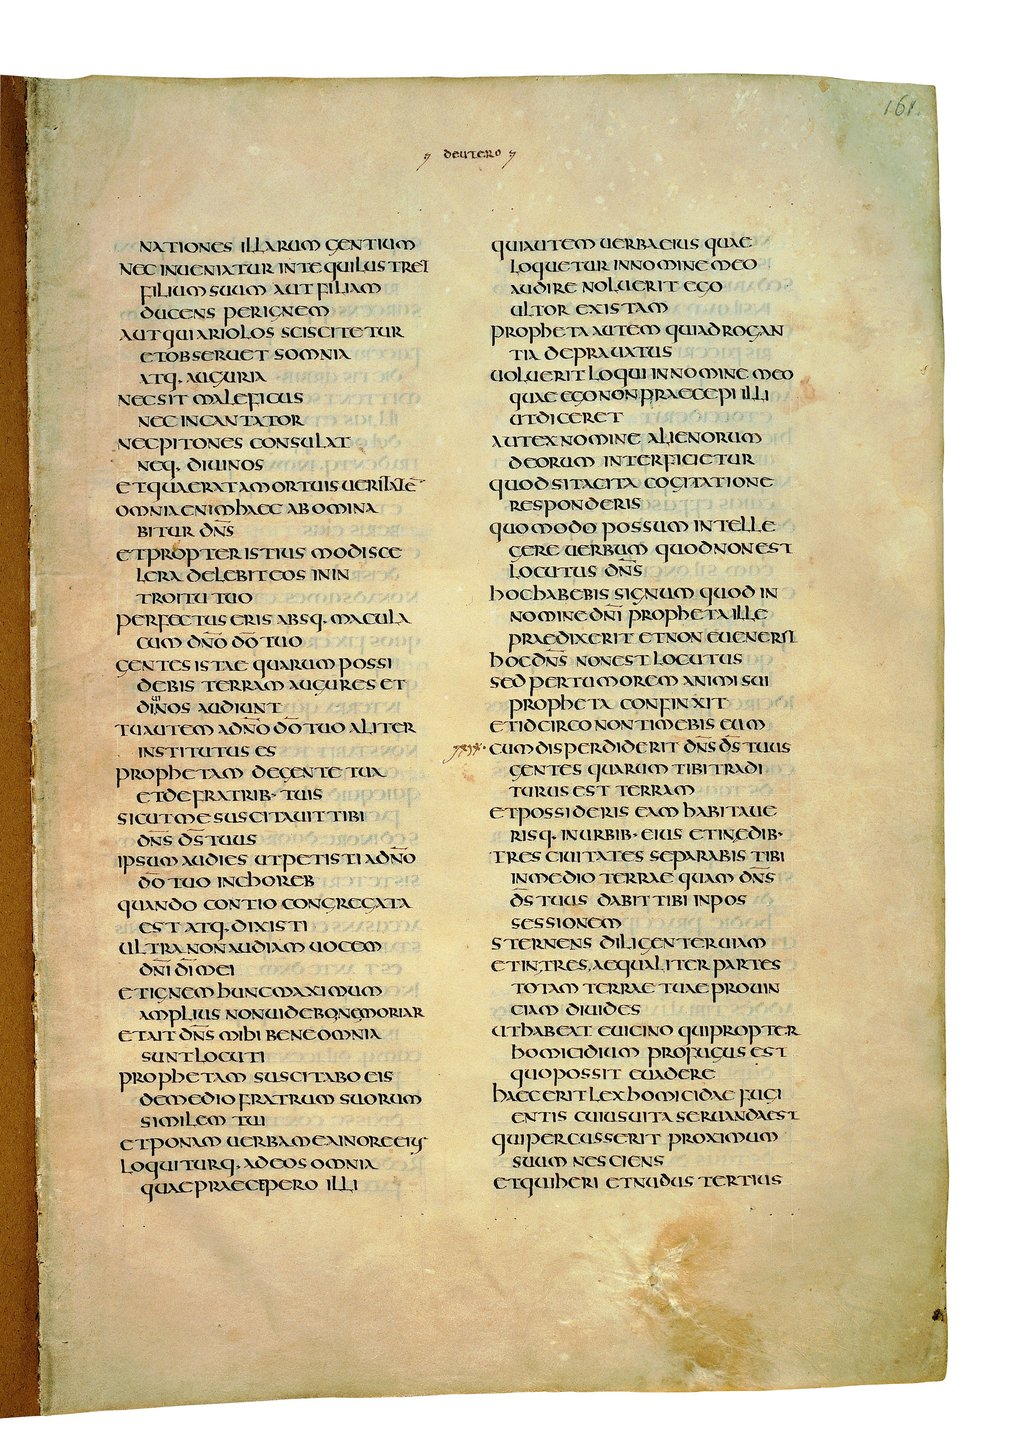 161.
deutero
NATIONES ILLARUM GENTIUM
NEC INUENIATUR INTE QUI LUSTRET
FILIUM SUUM AUT FILIAM
DUCENS PER IGNEM
AUT QUI ARIOLOS SCISCITETUR
ET OBSERUET SOMNIA
ATQ· AUGURIA
NEC SIT MALEFICUS
NEC INCANTATOR
NEC PITONES CONSULAT
NEQ· DIUINOS
ET QUAERAT A MORTUIS UERITATĒ
OMNIA ENIM HAEC ABOMINA
BITUR DN̄S
ET PROPTER ISTIUS MODI SCE
LERA DELEBIT EOS IN IN
TROITU TUO
PERFECTUS ERIS ABSQ· MACULA
CUM DN̄O DŌ TUO
GENTES ISTAE QUARUM POSSI
DEBIS TERRAM AUGURES ET
DIUINOS AUDIUNT
TU AUTEM A DN̄O DŌ TUO ALITER
INSTITUTUS ES
PROPHETAM DE GENTE TUA
ET DE FRATRIB· TUIS
SICUT ME SUSCITAUIT TIBI
DN̄S DS̄ TUUS
IPSUM AUDIES UT PETISTI A DN̄O
DŌ TUO IN CHOREB
QUANDO CONTIO CONGREGATA
EST ATQ· DIXISTI
ULTRA NON AUDIAM UOCEM
DN̄I DĪ MEI
ET IGNEM HUNC MAXIMUM
AMPLIUS NON UIDEBO NE MORIAR
ET AIT DN̄S MIHI BENE OMNIA
SUNT LOCUTI
PROPHETAM SUSCITABO EIS
DE MEDIO FRATRUM SUORUM
SIMILEM TUI
ET PONAM UERBA MEA IN ORE EIUS
LOQUITURQ· AD EOS OMNIA
QUAE PRAECEPERO ILLI
QUI AUTEM UERBA EIUS QUAE
LOQUETUR IN NOMINE MEO
AUDIRE NOLUERIT EGO
ULTOR EXISTAM
PROPHETA AUTEM QUI ADROGAN
TIA DEPRAUATUS
UOLUERIT LOQUI IN NOMINE MEO
QUAE EGO NON PRAECEPI ILLI
UT DICERET
AUT EX NOMINE ALIENORUM
DEORUM INTERFICIETUR
QUOD SI TACITA COGITATIONE
RESPONDERIS
QUOMODO POSSUM INTELLE
GERE UERBUM QUOD NON EST
LOCUTUS DN̄S
HOC HABEBIS SIGNUM QUOD IN
NOMINE DN̄I PROPHETA ILLE
PRAEDIXERIT ET NON EUENERIT
HOC DN̄S NON EST LOCUTUS
SED PER TUMOREM ANIMI SUI
PROPHETA CONFINXIT
ET IDCIRCO NON TIMEBIS EUM
CUM DISPERDIDERIT DN̄S DS̄ TUUS
GENTES QUARUM TIBI TRADI
TURUS EST TERRAM
ET POSSIDERIS EAM HABITAUE
RISQ· IN URBIB· EIUS ET IN EDIB·
TRES CIUITATES SEPARABIS TIBI
IN MEDIO TERRAE QUAM DN̄S
DS̄ TUUS DABIT TIBI IN POS
SESSIONEM
STERNENS DILIGENTER UIAM
ET IN TRES AEQUALITER PARTES
TOTAM TERRAE TUAE PROUIN
CIAM DIUIDES
UT HABEAT E UICINO QUI PROPTER
HOMICIDIUM PROFUGUS EST
QUO POSSIT EUADERE
HAEC ERIT LEX HOMICIDAE FUGI
ENTIS CUIUS UITA SERUANDA EST
QUI PERCUSSERIT PROXIMUM
SUUM NESCIENS
ET QUI HERI ET NUDUS TERTIUS